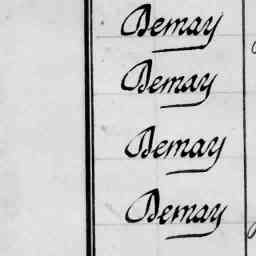 Demay
Demay
Demay
Demay